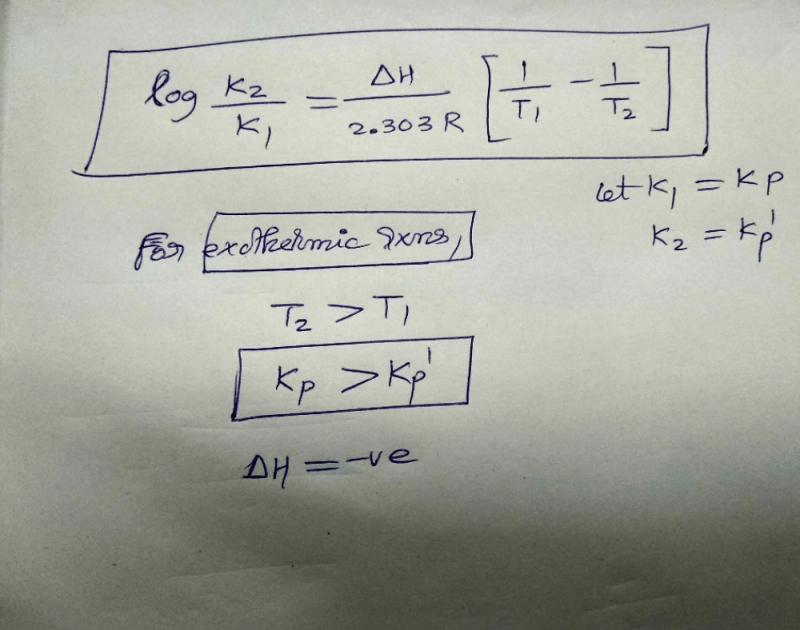 log K2/K1 = ΔH/2.303 R [1/T1 - 1/T2]
let K1 = Kp
K2 = Kp'
For exothermic rxns,
T2 > T1
Kp > Kp'
ΔH = -ve